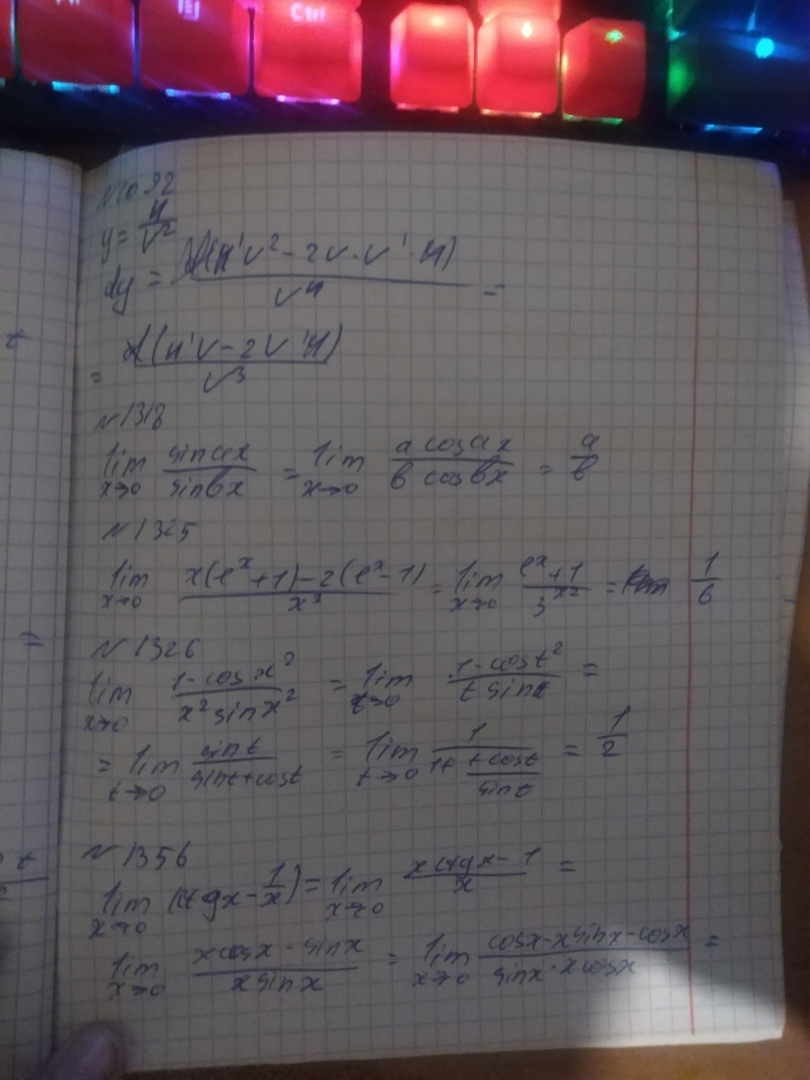 Ctrl
N1092
y = u/v²
dy = d(u'v² - 2v·v'·u)/v⁴ =
= d(u'v - 2v'u)/v³
N1318
lim x→0 sin ax / sin bx = lim x→0 a cos ax / b cos bx = a/b
N1325
lim x→0 (x(eˣ+1) - 2(eˣ-1))/x³ = lim x→0 (eˣ+1)/3x² = 1/6
N1326
lim x→0 (1-cos x²)/(x² sin x²) = lim t→0 (1-cos t²)/(t sin t) =
= lim t→0 sin t/(sin t + cos t) = lim t→0 1/(1+ t cos t/sin t) = 1/2
N1356
lim x→0 (ctgx - 1/x) = lim x→0 (x ctgx - 1)/x =
lim x→0 (x cosx - sinx)/(x sinx) = lim x→0 (cosx - x sinx - cosx)/(sinx · x cosx) =
t
=